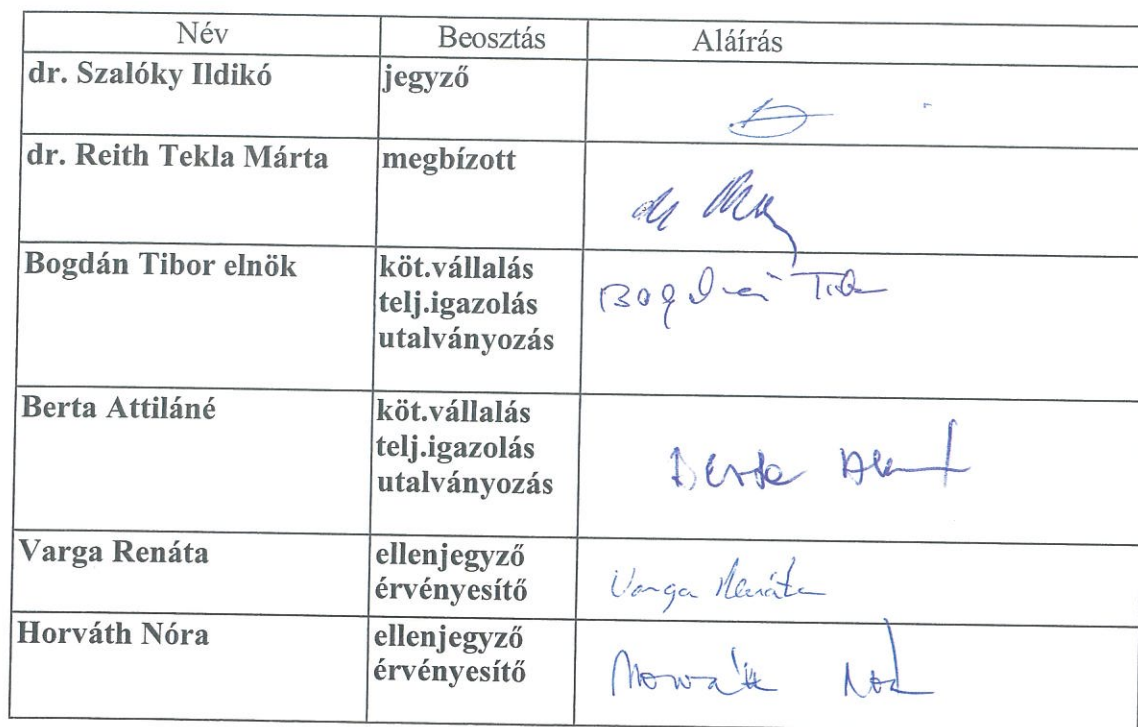 Név Beosztás Aláírás
dr. Szalóky Ildikó jegyző
dr. Reith Tekla Márta megbízott
Bogdán Tibor elnök köt.vállalás
telj.igazolás
utalványozás
Bogdán Tibor
Berta Attiláné köt.vállalás
telj.igazolás
utalványozás
Berta
Varga Renáta ellenjegyző
érvényesítő
Varga Renáta
Horváth Nóra ellenjegyző
érvényesítő
Horváth Nóra